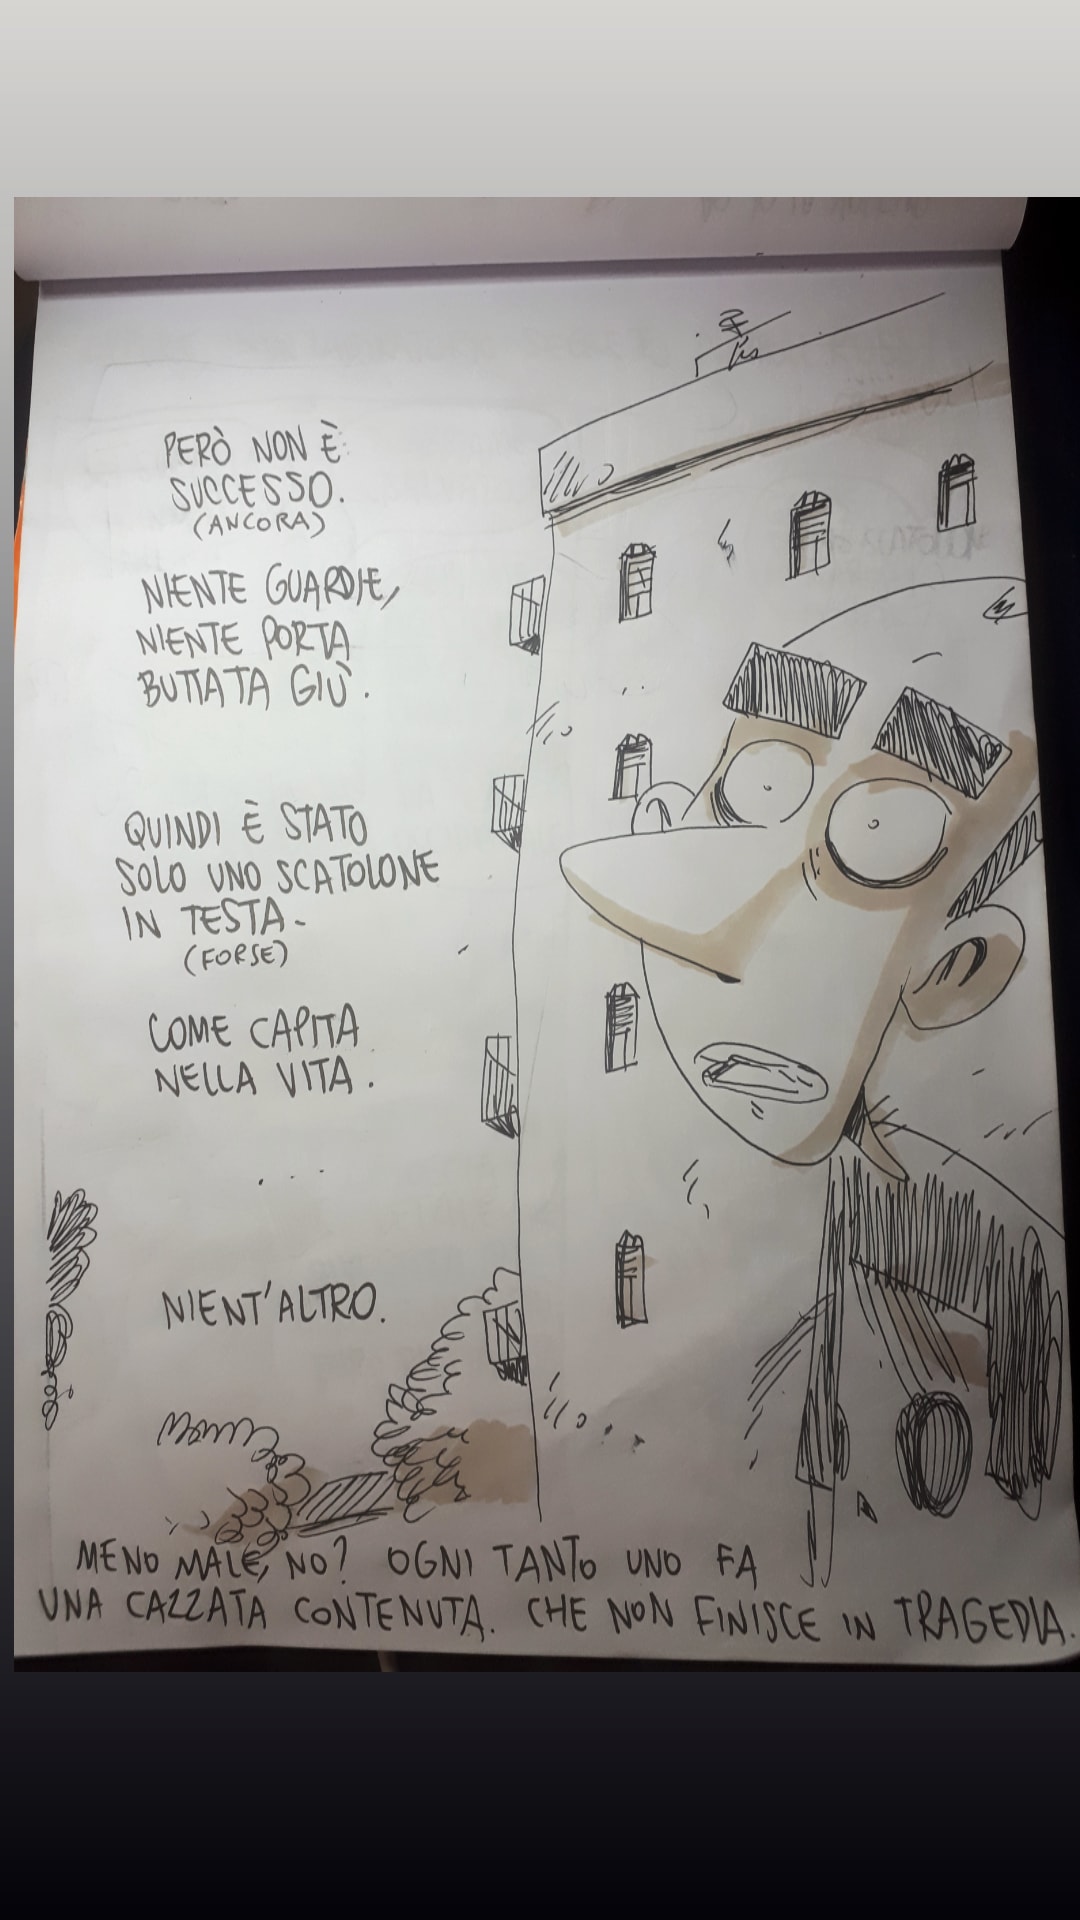 PERÒ NON È
SUCCESSO.
(ANCORA)
NIENTE GUARDIE,
NIENTE PORTA
BUTTATA GIÙ.
QUINDI È STATO
SOLO UNO SCATOLONE
IN TESTA.
(FORSE)
COME CAPITA
NELLA VITA.
NIENT'ALTRO.
MENO MALE, NO? OGNI TANTO UNO FA
UNA CAZZATA CONTENUTA. CHE NON FINISCE IN TRAGEDIA.